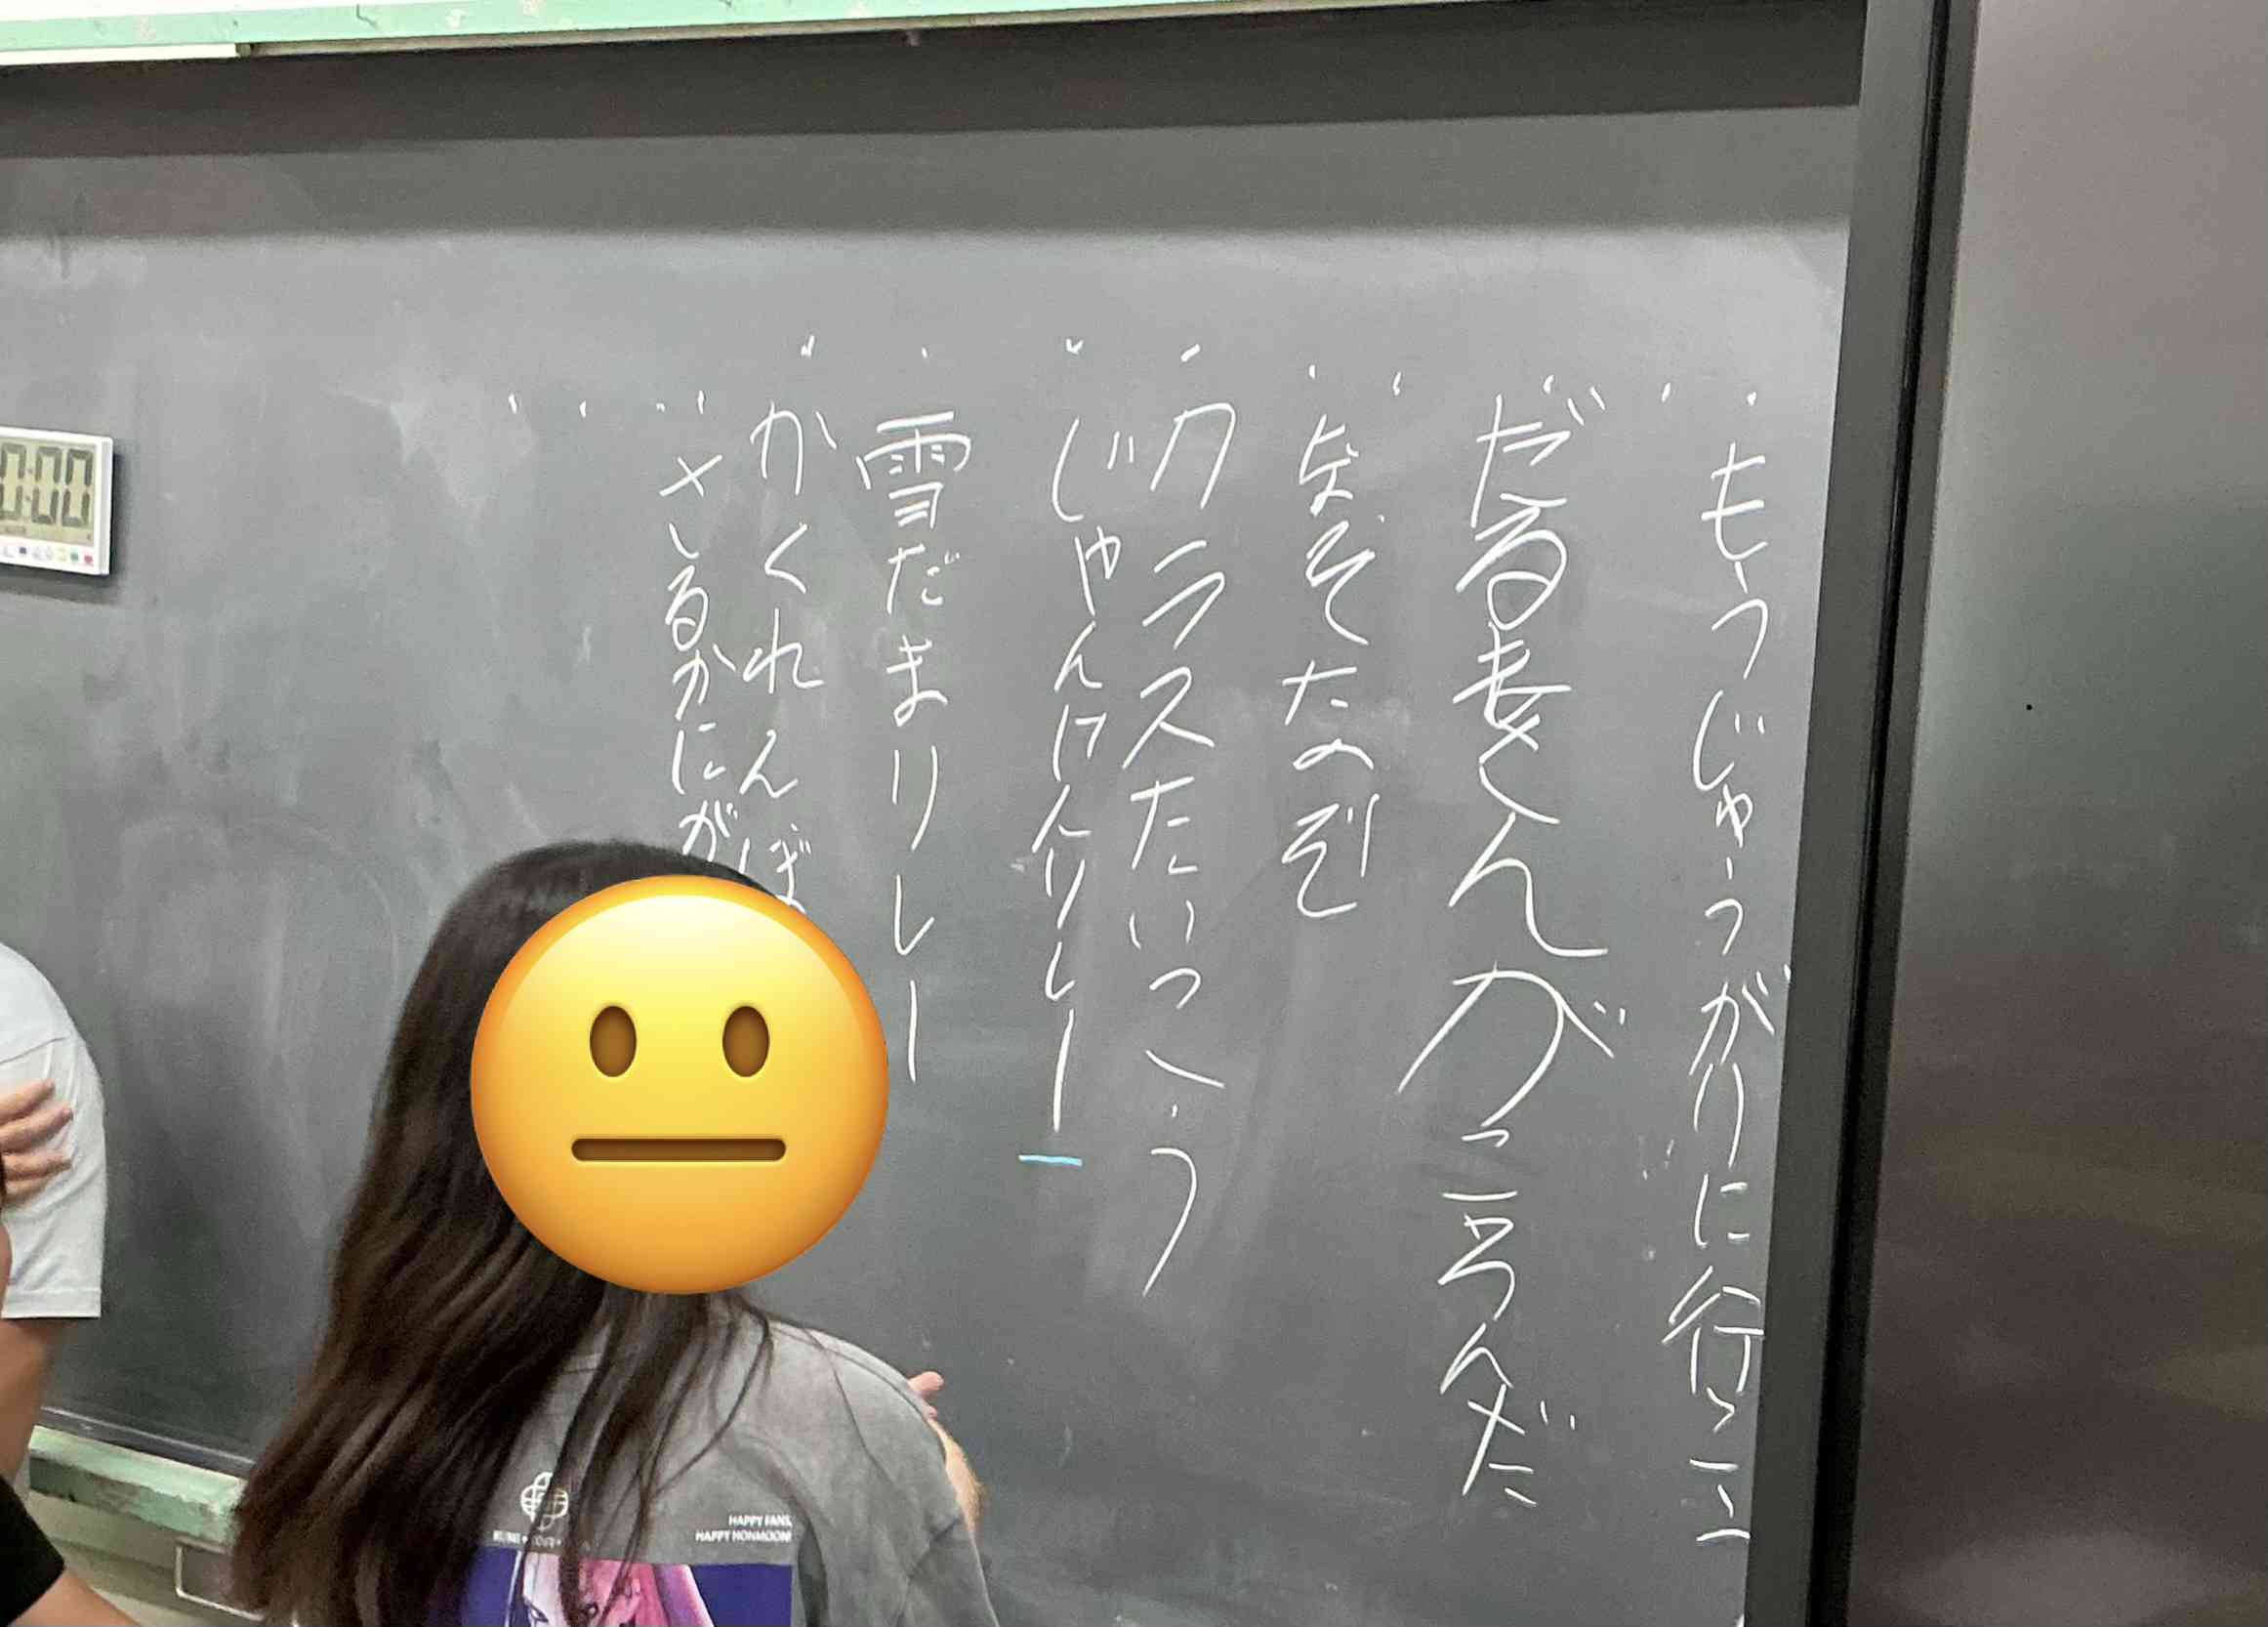 もうじゅうがりに行
だるまさんがころんだ
クラスたいこう
じゃんけんリレー
雪だまリレー
かくれんぼ
さるかにが
0:00
HAPPY FANS,
HAPPY HONMOON!